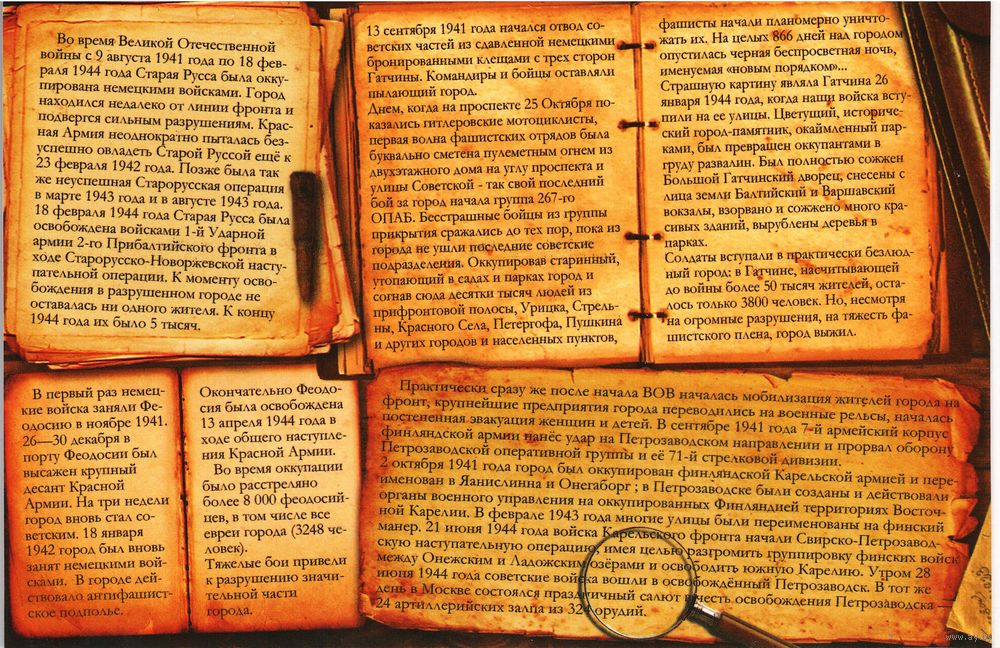 Во время Великой Отечественной
войны с 9 августа 1941 года по 18 фев-
раля 1944 года Старая Русса была окку-
пирована немецкими войсками. Город
находился недалеко от линии фронта и
подвергся сильным разрушениям. Крас-
ная Армия неоднократно пыталась без-
успешно овладеть Старой Руссой ещё к
23 февраля 1942 года. Позже была так
же неуспешная Старорусская операция
в марте 1943 года и в августе 1943 года.
18 февраля 1944 года Старая Русса была
освобождена войсками 1-й Ударной
армии 2-го Прибалтийского фронта в
ходе Старорусско-Новоржевской насту-
пательной операции. К моменту осво-
бождения в разрушенном городе не
оставалась ни одного жителя. К концу
1944 года их было 5 тысяч.
13 сентября 1941 года начался отвод со-
ветских частей из сдавленной немецкими
бронированными клещами с трех сторон
Гатчины. Командиры и бойцы оставляли
пылающий город.
Днем, когда на проспекте 25 Октября по-
казались гитлеровские мотоциклисты,
первая волна фашистских отрядов была
буквально сметена пулеметным огнем из
двухэтажного дома на углу проспекта и
улицы Советской - так свой последний
бой за город начала группа 267-го
ОПАБ. Бесстрашные бойцы из группы
прикрытия сражались до тех пор, пока из
города не ушли последние советские
подразделения. Оккупировав старинный,
утопающий в садах и парках город и
согнав сюда десятки тысяч людей из
прифронтовой полосы, Урицка, Стрель-
ны, Красного Села, Петергофа, Пушкина
и других городов и населенных пунктов,
фашисты начали планомерно уничто-
жать их. На целых 866 дней над городом
опустилась черная беспросветная ночь,
именуемая «новым порядком»...
Страшную картину являла Гатчина 26
января 1944 года, когда наши войска всту-
пили на ее улицы. Цветущий, историче-
ский город-памятник, окаймленный пар-
ками, был превращен оккупантами в
груду развалин. Был полностью сожжен
Большой Гатчинский дворец, снесены с
лица земли Балтийский и Варшавский
вокзалы, взорвано и сожжено много кра-
сивых зданий, вырублены деревья в
парках.
Солдаты вступали в практически безлюд-
ный город: в Гатчине, насчитывающей
до войны более 50 тысяч жителей, оста-
лось только 3800 человек. Но, несмотря
на огромные разрушения, на тяжесть фа-
шистского плена, город выжил.
В первый раз немец-
кие войска заняли Фе-
одосию в ноябре 1941.
26—30 декабря в
порту Феодосии был
высажен крупный
десант Красной
Армии. На три недели
город вновь стал со-
ветским. 18 января
1942 город был вновь
занят немецкими вой-
сками. В городе дей-
ствовало антифашист-
ское подполье.
Окончательно Феодо-
сия была освобождена
13 апреля 1944 года в
ходе общего наступле-
ния Красной Армии.
Во время оккупации
было расстреляно
более 8 000 феодосий-
цев, в том числе все
евреи города (3248 че-
ловек).
Тяжелые бои привели
к разрушению значи-
тельной части
города.
Практически сразу же после начала ВОВ началась мобилизация жителей города на
фронт, крупнейшие предприятия города переводились на военные рельсы, началась
постепенная эвакуация женщин и детей. В сентябре 1941 года 7-й армейский корпус
финляндской армии нанёс удар на Петрозаводском направлении и прорвал оборону
Петрозаводской оперативной группы и её 71-й стрелковой дивизии.
2 октября 1941 года город был оккупирован финляндской Карельской армией и пере-
именован в Яанислинна и Онегаборг ; в Петрозаводске были созданы и действовали
органы военного управления на оккупированных Финляндией территориях Восточ-
ной Карелии. В феврале 1943 года многие улицы были переименованы на финский
манер. 21 июня 1944 года войска Карельского фронта начали Свирско-Петрозавод-
скую наступательную операцию, имея целью разгромить группировку финских войск
между Онежским и Ладожским озёрами и освободить южную Карелию. Утром 28
июня 1944 года советские войска вошли в освобождённый Петрозаводск. В тот же
день в Москве состоялся праздничный салют в честь освобождения Петрозаводска —
24 артиллерийских залпа из 324 орудий.